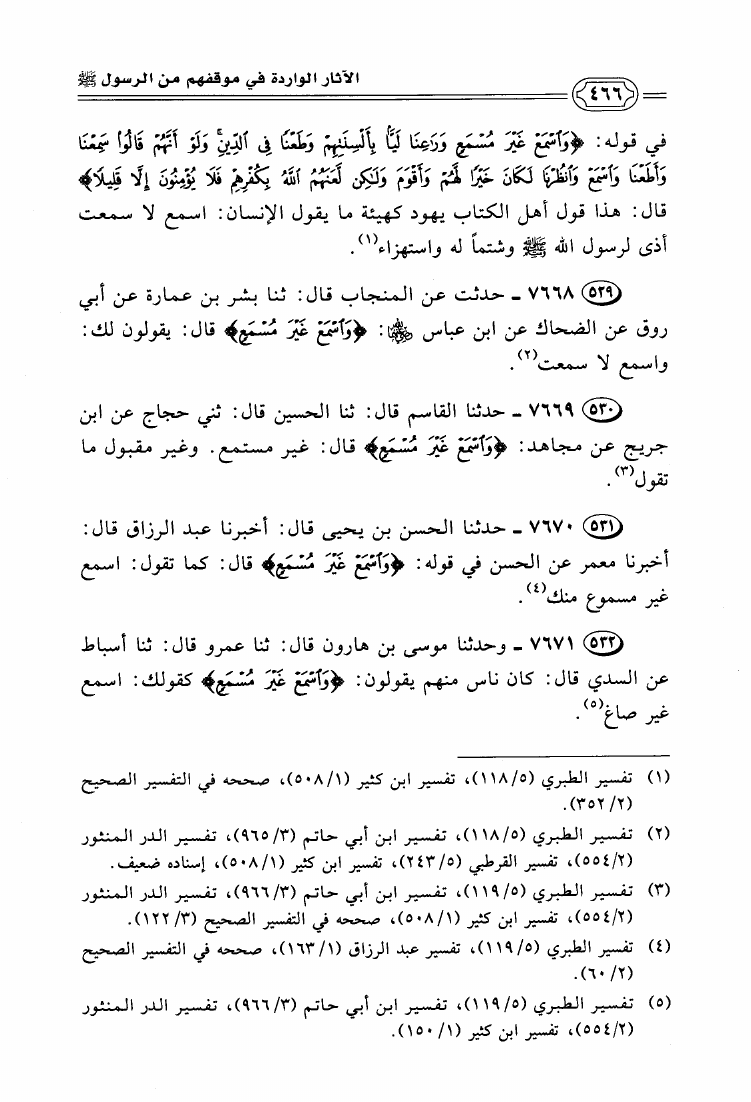 الآثار الواردة في موقفهم من الرسول ﷺ
٤٦٦
في قوله: ﴿وَٱسْمَعْ غَيْرَ مُسْمَعٍ وَرَٰعِنَا لَيًّۢا بِأَلْسِنَتِهِمْ وَطَعْنًا فِى ٱلدِّينِ ۚ وَلَوْ أَنَّهُمْ قَالُوا۟ سَمِعْنَا
وَأَطَعْنَا وَٱسْمَعْ وَٱنظُرْنَا لَكَانَ خَيْرًا لَّهُمْ وَأَقْوَمَ وَلَٰكِن لَّعَنَهُمُ ٱللَّهُ بِكُفْرِهِمْ فَلَا يُؤْمِنُونَ إِلَّا قَلِيلًا﴾
قال: هذا قول أهل الكتاب يهود كهيئة ما يقول الإنسان: اسمع لا سمعت
أذى لرسول الله ﷺ وشتماً له واستهزاء(١).
٥٢٩ ٧٦٦٨ ـ حدثت عن المنجاب قال: ثنا بشر بن عمارة عن أبي
روق عن الضحاك عن ابن عباس رضي الله عنهما: ﴿وَٱسْمَعْ غَيْرَ مُسْمَعٍ﴾ قال: يقولون لك:
واسمع لا سمعت(٢).
٥٣٠ ٧٦٦٩ ـ حدثنا القاسم قال: ثنا الحسين قال: ثني حجاج عن ابن
جريج عن مجاهد: ﴿وَٱسْمَعْ غَيْرَ مُسْمَعٍ﴾ قال: غير مستمع. وغير مقبول ما
تقول(٣).
٥٣١ ٧٦٧٠ ـ حدثنا الحسن بن يحيى قال: أخبرنا عبد الرزاق قال:
أخبرنا معمر عن الحسن في قوله: ﴿وَٱسْمَعْ غَيْرَ مُسْمَعٍ﴾ قال: كما تقول: اسمع
غير مسموع منك(٤).
٥٣٢ ٧٦٧١ ـ وحدثنا موسى بن هارون قال: ثنا عمرو قال: ثنا أسباط
عن السدي قال: كان ناس منهم يقولون: ﴿وَٱسْمَعْ غَيْرَ مُسْمَعٍ﴾ كقولك: اسمع
غير صاغ(٥).
(١) تفسير الطبري (١١٨/٥)، تفسير ابن كثير (٥٠٨/١)، صححه في التفسير الصحيح
(٣٥٢/٢).
(٢) تفسير الطبري (١١٨/٥)، تفسير ابن أبي حاتم (٩٦٥/٣)، تفسير الدر المنثور
(٥٥٤/٢)، تفسير القرطبي (٢٤٣/٥)، تفسير ابن كثير (٥٠٨/١)، إسناده ضعيف.
(٣) تفسير الطبري (١١٩/٥)، تفسير ابن أبي حاتم (٩٦٦/٣)، تفسير الدر المنثور
(٥٥٤/٢)، تفسير ابن كثير (٥٠٨/١)، صححه في التفسير الصحيح (١٢٢/٣).
(٤) تفسير الطبري (١١٩/٥)، تفسير عبد الرزاق (١٦٣/١)، صححه في التفسير الصحيح
(٦٠/٢).
(٥) تفسير الطبري (١١٩/٥)، تفسير ابن أبي حاتم (٩٦٦/٣)، تفسير الدر المنثور
(٥٥٤/٢)، تفسير ابن كثير (١٥٠/١).